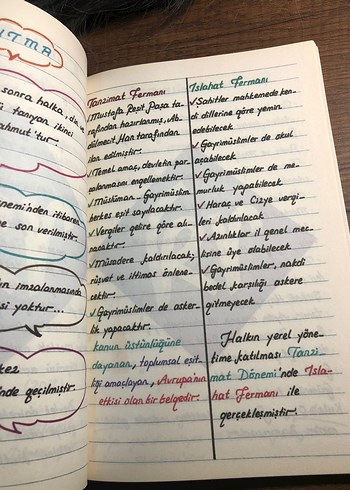 ITMA
sonra halka, di
ü tanıyan ikinci
ahmut'tur.
nemi'nden itibaren
e son verilmiştir.
ın imzalanmasında
si yoktur...
kez
nde geçilmiştir.
Tanzimat Fermanı
✓Mustafa Reşit Paşa ta-
rafından hazırlanmış, Ab-
dülmecit Han tarafından
ilan edilmiştir.
✓Temel amaç, devletin par-
çalanmasını engellemektir.
✓Müslüman - Gayrimüslim
herkes eşit sayılacaktır.
✓Vergiler gelire göre alı-
nacaktır.
✓Müsadere kaldırılacak;
rüşvet ve iltimas önlene-
cektir.
✓Gayrimüslimler de asker-
lik yapacaktır.
kanun üstünlüğüne
dayanan, toplumsal eşit-
liği amaçlayan, Avrupa'nın
etkisi olan bir belgedir.
Islahat Fermanı
✓Şahitler mahkemede ken-
di dillerine göre yemin
edebilecek
✓Gayrimüslimler de okul
açabilecek
✓Gayrimüslimler de me-
murluk yapabilecek
✓Haraç ve Cizye vergi-
leri kaldırılacak
✓Azınlıklar il genel mec-
lisine üye olabilecek
✓Gayrimüslimler, nakdi
bedel karşılığı askere
gitmeyecek
Halkın yerel yöne-
time katılması Tanzi-
mat Dönemi'nde Isla-
hat Fermanı ile
gerçekleşmiştir.